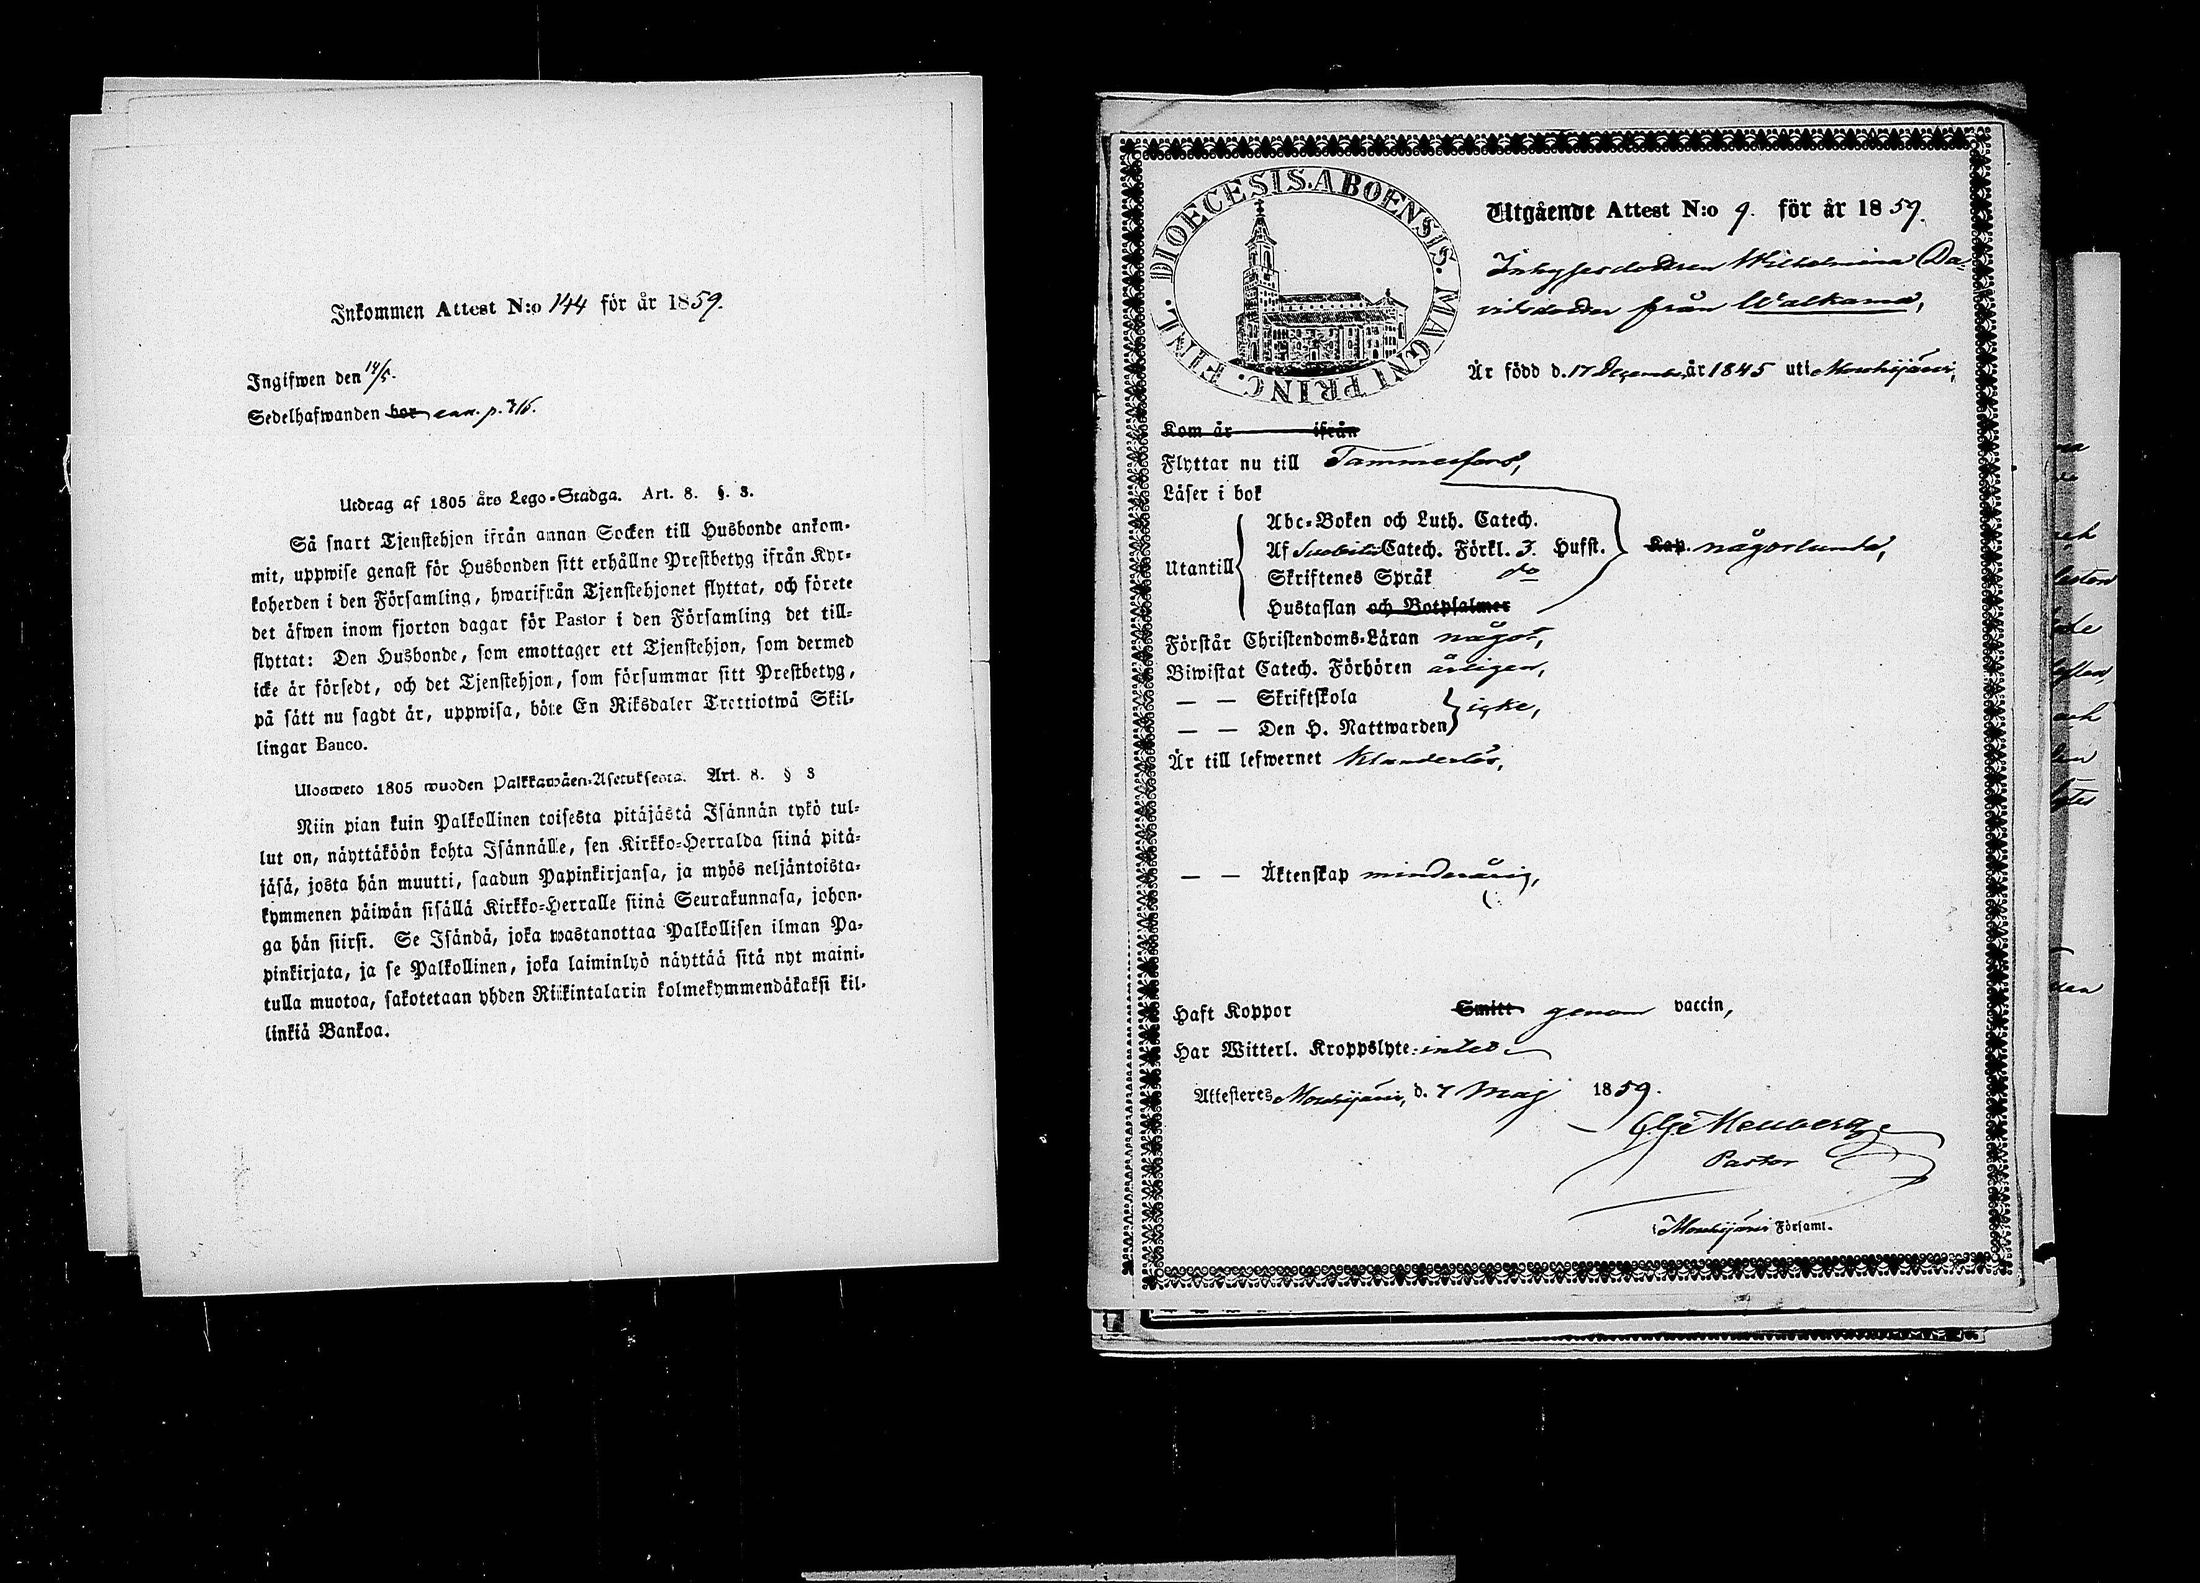 Inkommen Attest N:o 144 för år 1859.
Ingifwen den 14/5.
Sedelhafwanden bor enn. p. 316.
Utdrag af 1805 års Lego-Stadga. Art. 8. §. 3.
Så snart Tjenstehjon ifrån annan Socken till Husbonde ankom-
mit, uppwise genast för Husbonden sitt erhållne Prestbetyg ifrån Kyr-
koherden i den Församling, hwarifrån Tjenstehjonet flyttat, och förete
det äfwen inom fjorton dagar för Pastor i den Församling det till-
flyttat: Den Husbonde, som emottager ett Tjenstehjon, som dermed
icke är försedt, och det Tjenstehjon, som försummar sitt Prestbetyg,
på sätt nu sagdt är, uppwisa, böte En Riksdaler Trettiotwå Skil-
lingar Banco.
Ulosweto 1805 wuoden Palkkawäen-Asetuksesta. Art. 8. § 3
Niin pian kuin Palkollinen toisesta pitäjästä Isännän tykö tul-
lut on, näyttäköön kohta Isännälle, sen Kirkko-Herralda siinä pitä-
jäsä, josta hän muutti, saadun Papinkirjansa, ja myös neljäntoista-
kymmenen päiwän sisällä Kirkko-Herralle siinä Seurakunnasa, johon-
ga hän siirsi. Se Isändä, joka wastanottaa Palkollisen ilman Pa-
pinkirjata, ja se Palkollinen, joka laiminlyö näyttää sitä nyt maini-
tulla muotoa, sakotetaan yhden Riikintalarin kolmekymmendäkaksi kil-
linkiä Bankoa.
DIOECESIS. ABOENSIS. MAGNI PRINC. FINL.
Utgående Attest N:o 9. för år 1859.
Inhysesdottren Wilhelmina Da-
vidsdotter från Walkama,
Är född d. 17 December år 1845 uti Mouhijärvi,
Kom år ifrån
Flyttar nu till Tammerfors,
Läser i bok
Utantill
Abc-Boken och Luth. Catech.
Af Svebilii Catech. Förkl. 3. Hufst. Kap. någorlunda,
Skriftenes Språk do
Hustaflan och Botpsalmer
Förstår Christendoms-Läran något,
Biwistat Catech. Förhören årligen,
— — Skriftskola
— — Den H. Nattwarden icke,
Är till lefwernet klanderlös,
— — Äktenskap minderårig,
Haft Koppor Smitt genom vaccin,
Har Witterl. Kroppslyte: intet
Attesteres Mouhijärvi, d. 7 Maj 1859.
Pastor
i Mouhijärvi Församl.